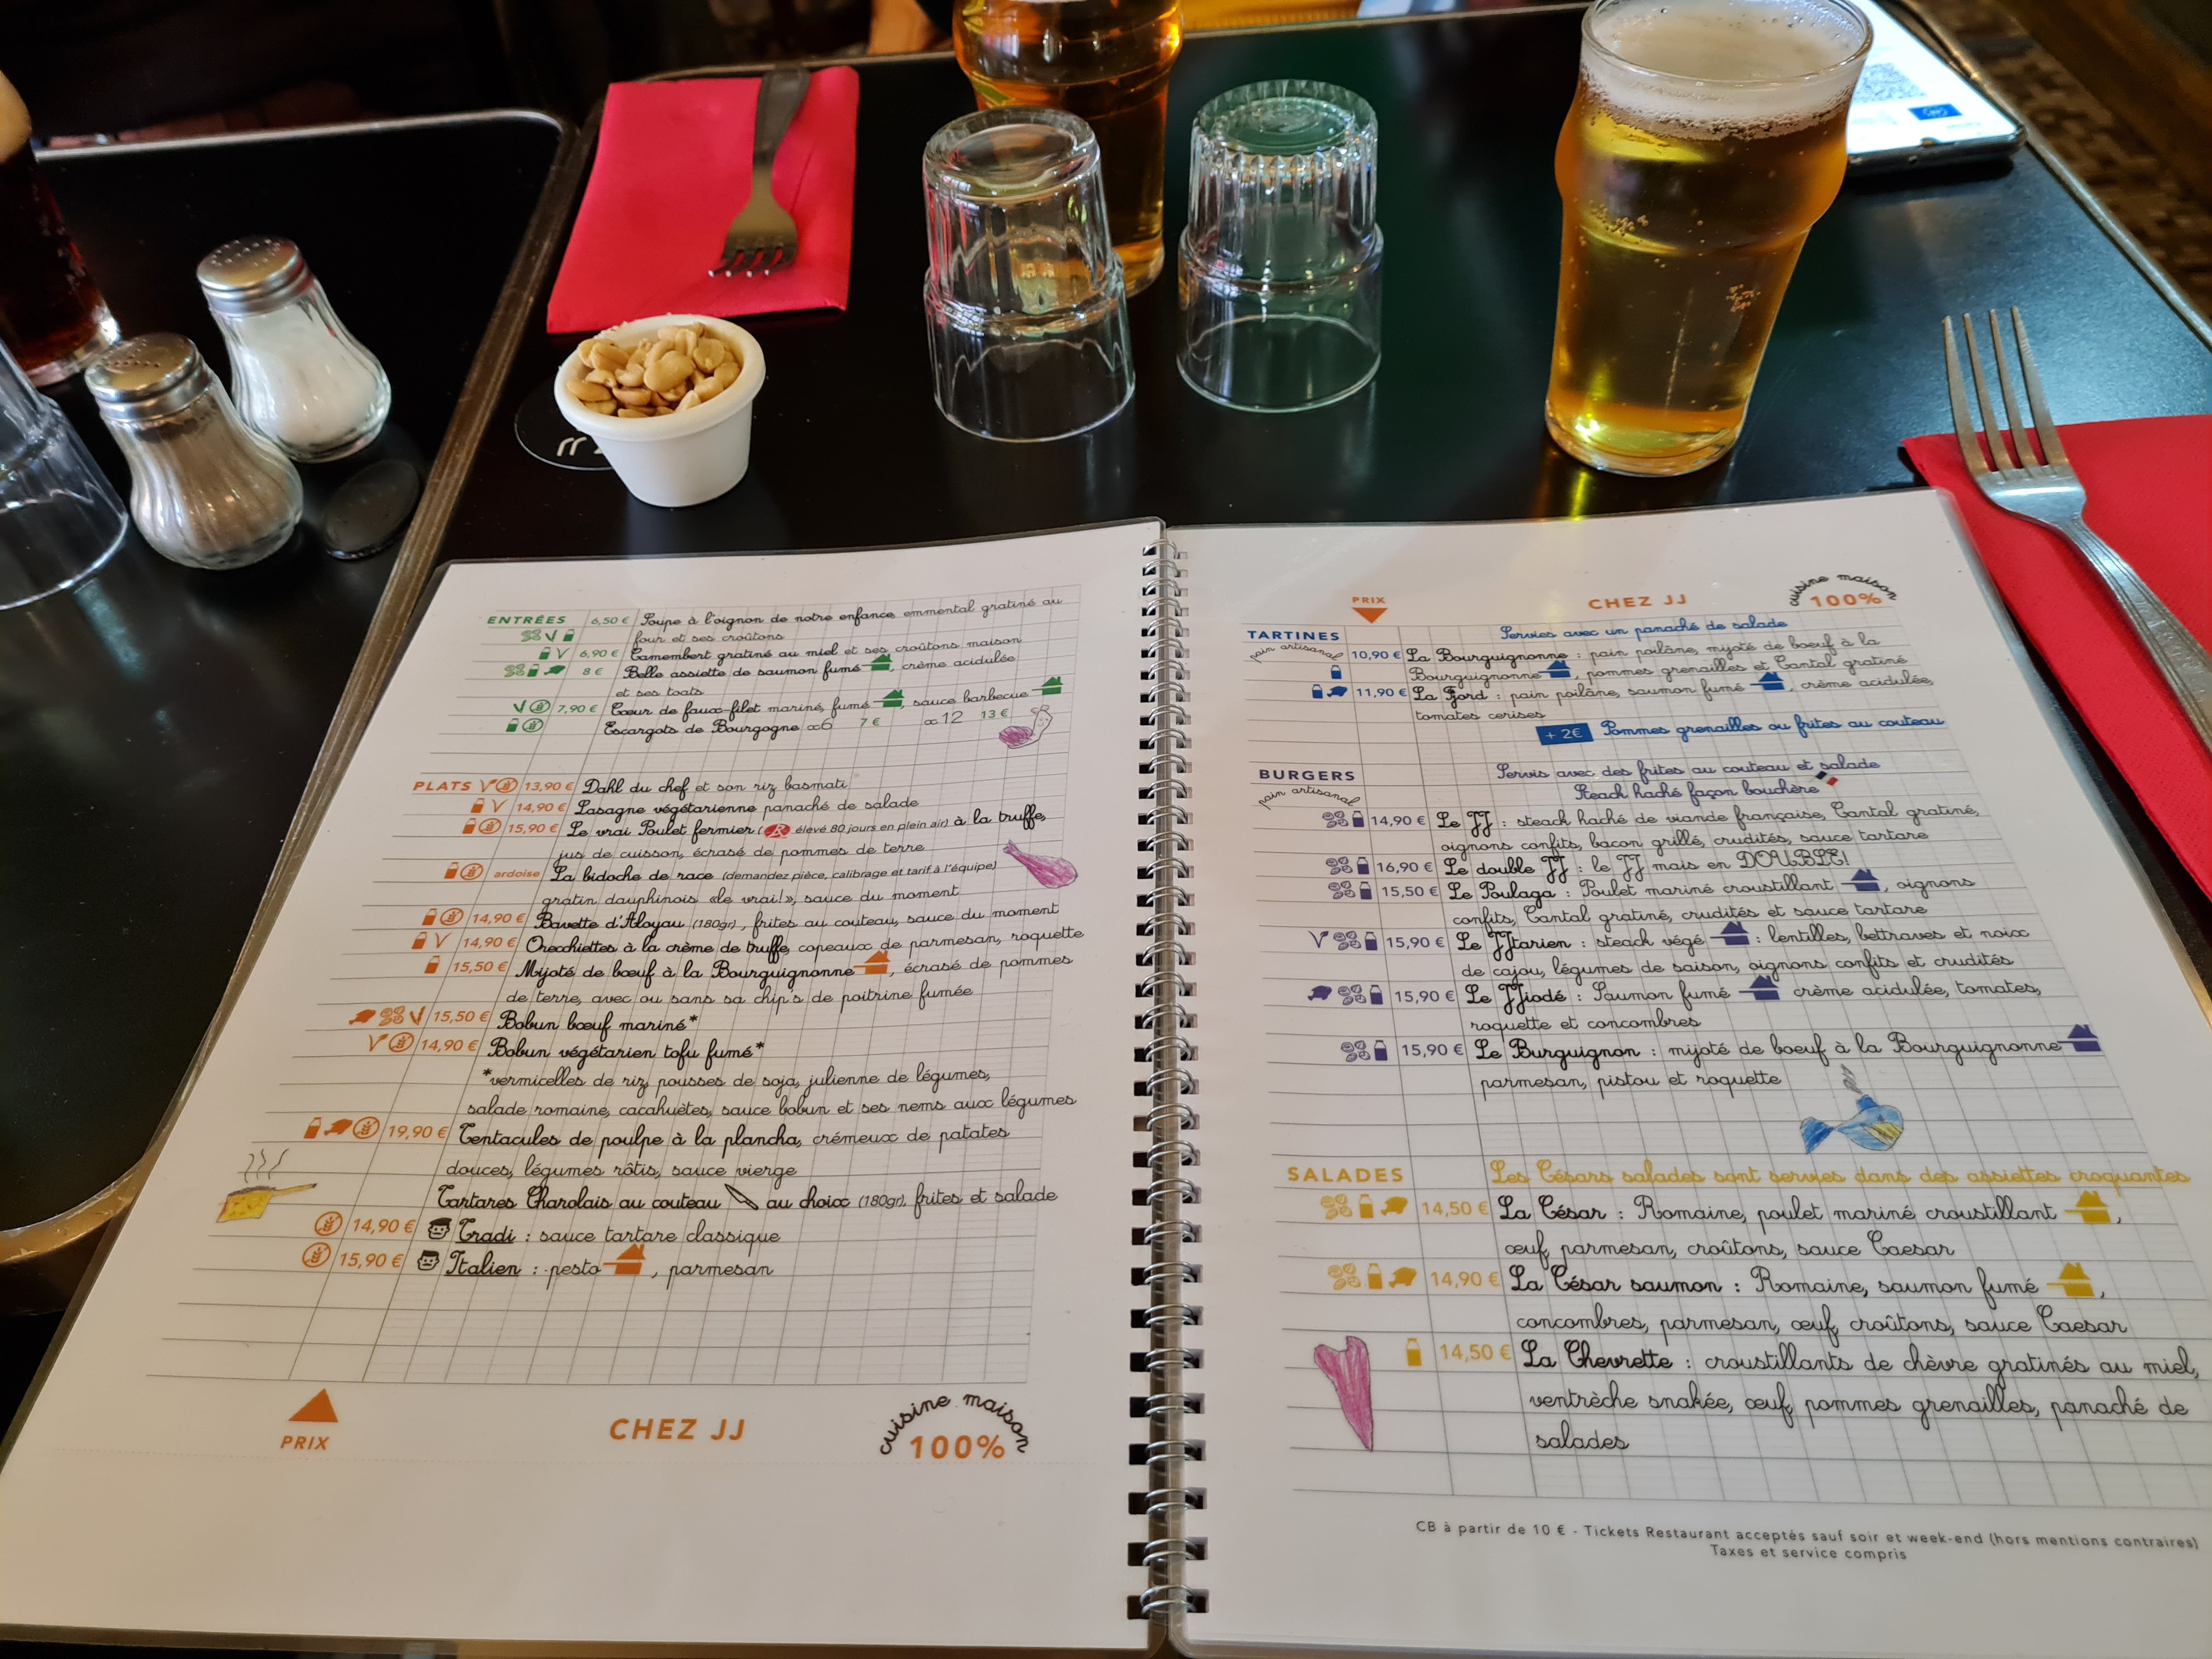 ENTRÉES 6,50 € Soupe à l'oignon de notre enfance emmental gratiné au
four et ses croûtons
6,90 € Camembert gratiné au miel et ses croûtons maison
8 € Belle assiette de saumon fumé, crème acidulée
et ses toats
7,90 € Cœur de faux-filet mariné, fumé, sauce barbecue
Escargots de Bourgogne x6 7 € x12 13 €
PLATS 13,90 € Dahl du chef et son riz basmati
14,90 € Lasagne végétarienne panaché de salade
15,90 € Le vrai Poulet fermier ( élevé 80 jours en plein air) à la truffe,
jus de cuisson, écrasé de pommes de terre
ardoise La bidoche de race (demandez pièce, calibrage et tarif à l'équipe)
gratin dauphinois «le vrai!», sauce du moment
14,90 € Bavette d'Aloyau (180gr), frites au couteau, sauce du moment
14,90 € Orecchiettes à la crème de truffe, copeaux de parmesan, roquette
15,50 € Mijoté de bœuf à la Bourguignonne, écrasé de pommes
de terre, avec ou sans sa chip's de poitrine fumée
15,50 € Bobun bœuf mariné*
14,90 € Bobun végétarien tofu fumé*
*vermicelles de riz, pousses de soja, julienne de légumes,
salade romaine, cacahuètes, sauce bobun et ses nems aux légumes
19,90 € Tentacules de poulpe à la plancha, crémeux de patates
douces, légumes rôtis, sauce vierge
Tartares Charolais au couteau au choix (180gr), frites et salade
14,90 € Tradi : sauce tartare classique
15,90 € Italien : pesto, parmesan
PRIX
CHEZ JJ
cuisine maison
100%
PRIX
CHEZ JJ
cuisine maison
100%
TARTINES Servies avec un panaché de salade
pain artisanal
10,90 € La Bourguignonne : pain poilâne, mijoté de boeuf à la
Bourguignonne, pommes grenailles et Cantal gratiné
11,90 € La Fjord : pain poilâne, saumon fumé, crème acidulée,
tomates cerises
+ 2€ Pommes grenailles ou frites au couteau
BURGERS Servis avec des frites au couteau et salade
pain artisanal
Steack haché façon bouchère
14,90 € Le JJ : steack haché de viande française, Cantal gratiné,
oignons confits, bacon grillé, crudités, sauce tartare
16,90 € Le double JJ : le JJ mais en DOUBLE!
15,50 € Le Poulaga : Poulet mariné croustillant, oignons
confits, Cantal gratiné, crudités et sauce tartare
15,90 € Le JJtarien : steack végé : lentilles, bettraves et noix
de cajou, légumes de saison, oignons confits et crudités
15,90 € Le JJiodé : Saumon fumé crème acidulée, tomates,
roquette et concombres
15,90 € Le Burguignon : mijoté de boeuf à la Bourguignonne
parmesan, pistou et roquette
SALADES Les Césars salades sont servies dans des assiettes croquantes
14,50 € La César : Romaine, poulet mariné croustillant,
œuf, parmesan, croûtons, sauce Caesar
14,90 € La César saumon : Romaine, saumon fumé,
concombres, parmesan, œuf, croûtons, sauce Caesar
14,50 € La Chevrette : croustillants de chèvre gratinés au miel,
ventrèche snakée, œuf, pommes grenailles, panaché de
salades
CB à partir de 10 € - Tickets Restaurant acceptés sauf soir et week-end (hors mentions contraires)
Taxes et service compris